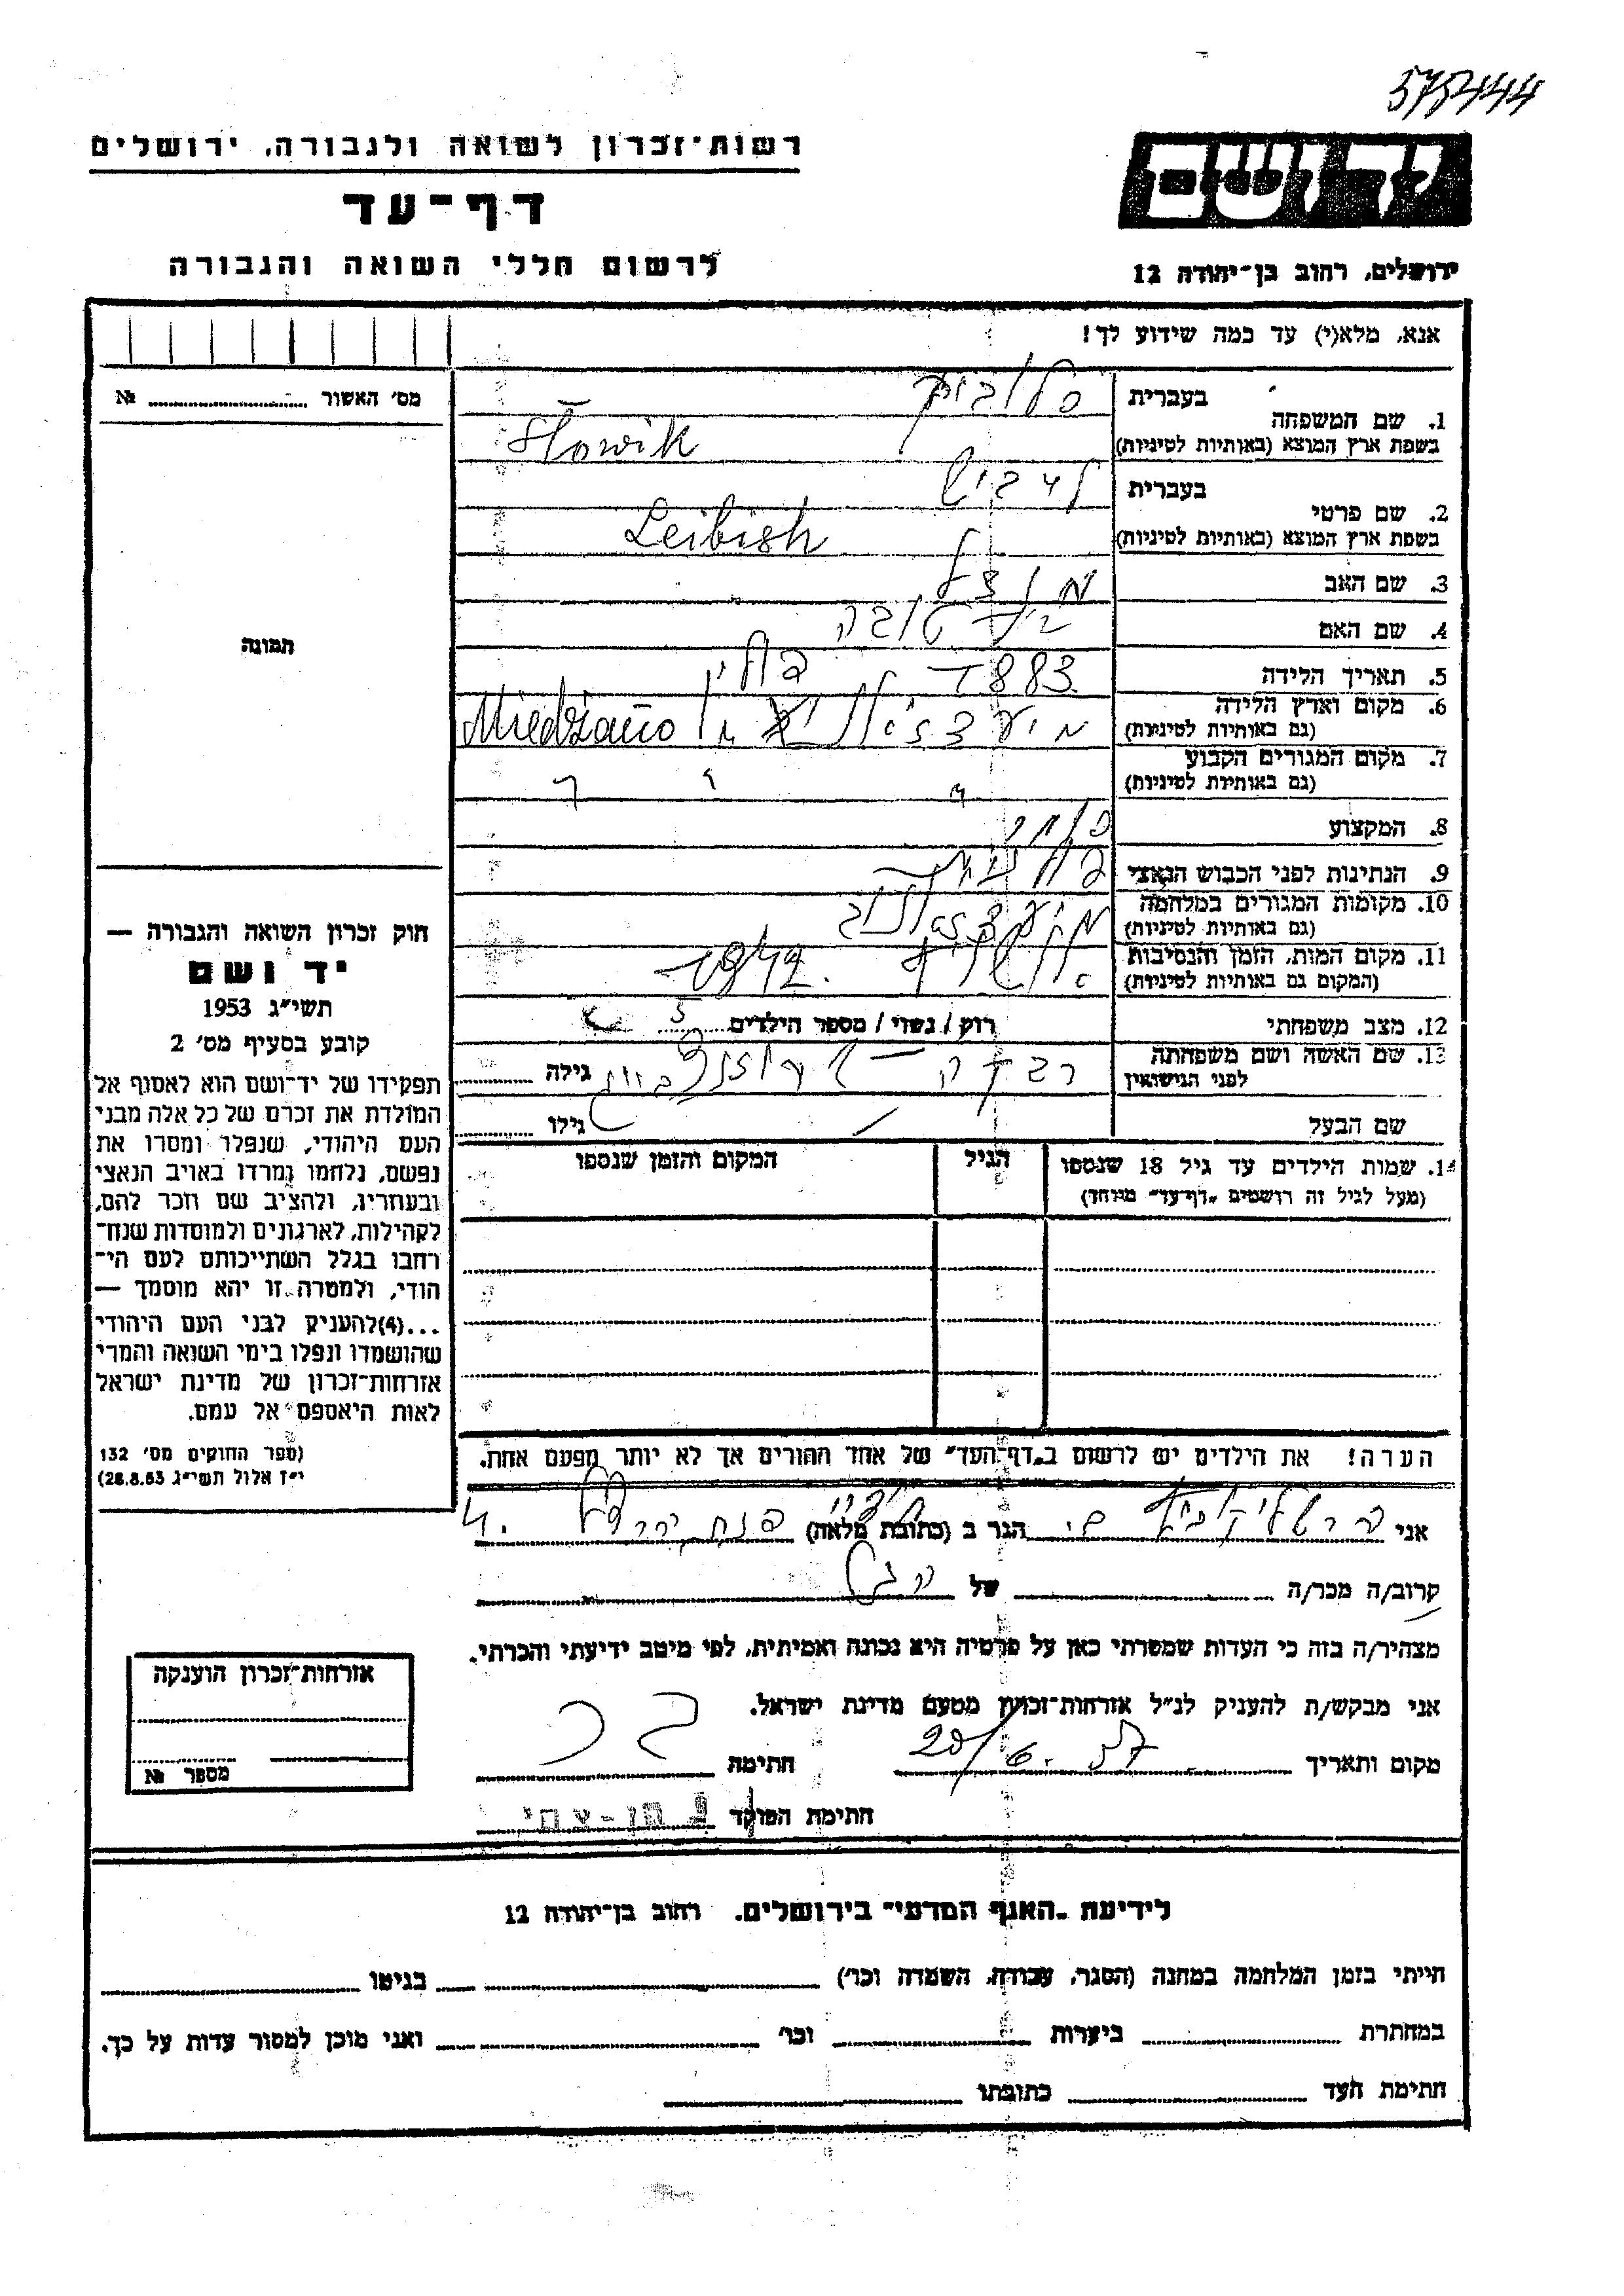 רשות־זכרון לשואה ולגבורה, ירושלים
דף־עד
לרשום חללי השואה והגבורה
יד ושם
ירושלים, רחוב בן־יהודה 12
אנא, מלא(י) עד כמה שידוע לך!
מס׳ האשור №
1. שם המשפחה
בעברית סלוביק
בשפת ארץ המוצא (באותיות לטיניות) Słowik
2. שם פרטי
בעברית לייביש
בשפת ארץ המוצא (באותיות לטיניות) Leibish
3. שם האב
4. שם האם טובה
5. תאריך הלידה 1883 פולין
6. מקום וארץ הלידה
(גם באותיות לטיניות) Miedziano
7. מקום המגורים הקבוע
(גם באותיות לטיניות)
8. המקצוע סוחר
9. הנתינות לפני הכבוש הנאצי פולנית
10. מקומות המגורים במלחמה
(גם באותיות לטיניות)
11. מקום המות, הזמן והנסיבות 1942
(המקום גם באותיות לטיניות)
12. מצב משפחתי רוק / נשוי / מספר הילדים 5
13. שם האשה ושם משפחתה
לפני הנישואין רבקה גילה
שם הבעל גילו
14. שמות הילדים עד גיל 18 שנספו
(מעל לגיל זה רושמים „דף־עד״ מיוחד)
הגיל
המקום והזמן שנספו
הערה! את הילדים יש לרשום ב„דף־העד״ של אחד ההורים אך לא יותר מפעם אחת.
תמונה
חוק זכרון השואה והגבורה —
יד ושם
תשי״ג 1953
קובע בסעיף מס׳ 2
תפקידו של יד־ושם הוא לאסוף אל
המולדת את זכרם של כל אלה מבני
העם היהודי, שנפלו ומסרו את
נפשם, נלחמו ומרדו באויב הנאצי
ובעוזריו, ולהציב שם וזכר להם,
לקהילות, לארגונים ולמוסדות שנח־
רבו בגלל השתייכותם לעם הי־
הודי, ולמטרה זו יהא מוסמך —
...(4) להעניק לבני העם היהודי
שהושמדו ונפלו בימי השואה והמרי
אזרחות־זכרון של מדינת ישראל
לאות היאספם אל עמם.
(ספר החוקים מס׳ 132
י״ז אלול תשי״ג 28.8.53)
אני הגר ב (כתובת מלאה)
קרוב/ה מכר/ה של
מצהיר/ה בזה כי העדות שמסרתי כאן על פרטיה היא נכונה ואמיתית, לפי מיטב ידיעתי והכרתי.
אני מבקש/ת להעניק לנ״ל אזרחות־זכרון מטעם מדינת ישראל.
מקום ותאריך 20/6.57 חתימה
חתימת הפוקד
אזרחות־זכרון הוענקה
מספר №
לידיעת „האגף המדעי״ בירושלים. רחוב בן־יהודה 12
הייתי בזמן המלחמה במחנה (הסגר, עבודה, השמדה וכו׳) בגיטו
במחתרת ביערות וכו׳ ואני מוכן למסור עדות על כך.
חתימת העד כתובתו